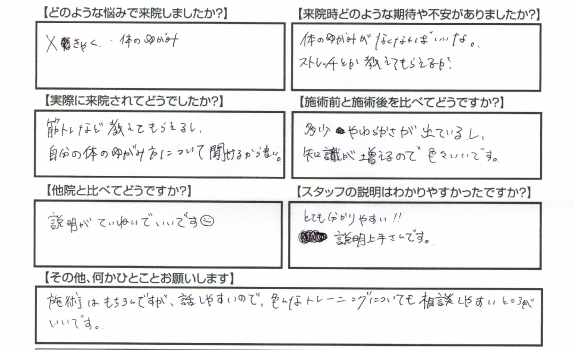 【どのような悩みで来院しましたか?】
X脚きゃく、・体のゆがみ
【来院時どのような期待や不安がありましたか?】
体のゆがみがなくなればいいな。
ストレッチとか教えてもらえるか?
【実際に来院されてどうでしたか?】
筋トレなど教えてもらえるし、
自分の体のゆがみ方について聞けるから良い。
【施術前と施術後を比べてどうですか?】
多少やわらかさが出ているし、
知識が増えるので色々いいです。
【他院と比べてどうですか?】
説明がていねいでいいです
【スタッフの説明はわかりやすかったですか?】
とても分かりやすい!!
説明上手さんです。
【その他、何かひとことお願いします】
施術はもちろんですが、話しやすいので、色んなトレーニングについても相談しやすいところが
いいです。